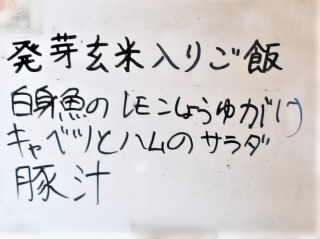 発芽玄米入りご飯
白身魚のレモンしょうゆがけ
キャベツとハムのサラダ
豚汁